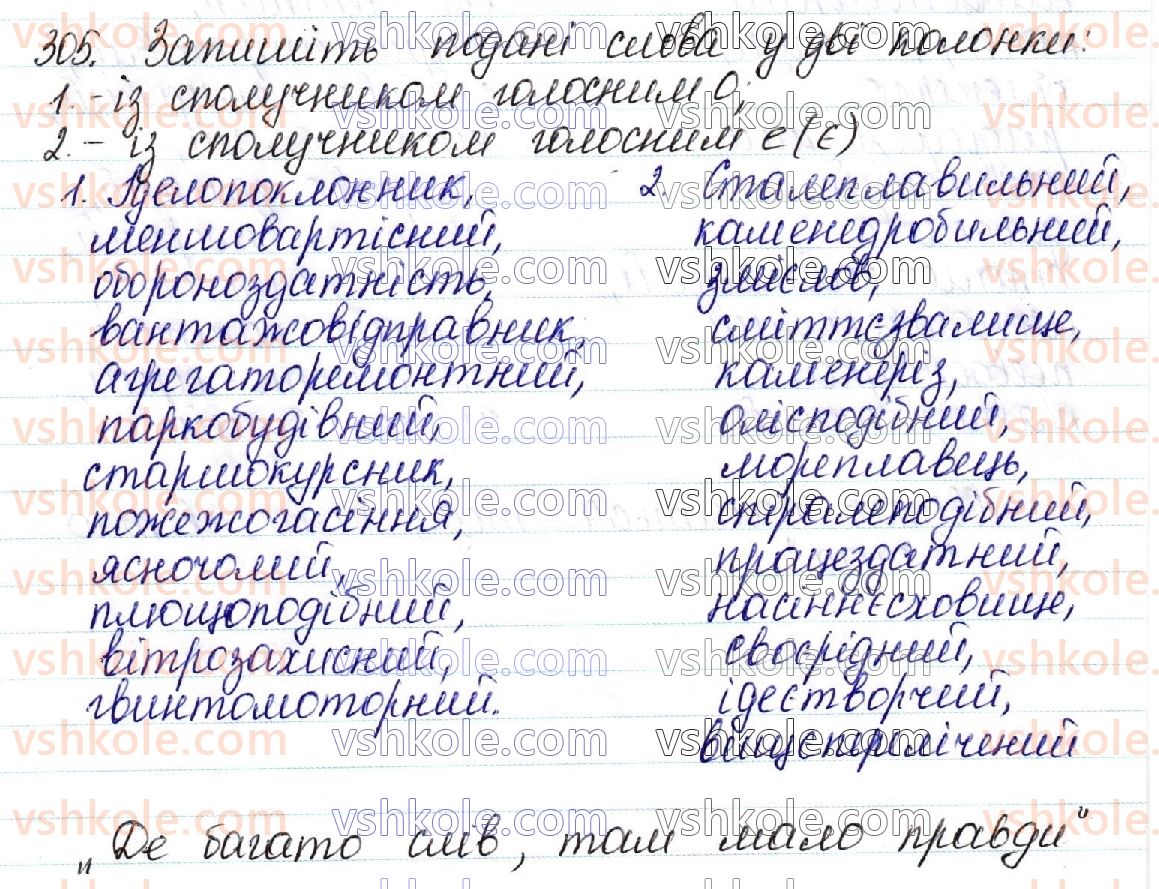 305. Запишіть подані слова у дві колонки:
1. - із сполучником голосним о;
2. - із сполучником голосним е (є)
1. Ідолопоклонник, 2. Сталеплавильний,
меншовартісний, каменедробильний,
обороноздатність, змієлов,
вантажовідправник, сміттєзвалище,
агрегаторемонтний, каменеріз,
паркобудівний, олієподібний,
старшокурсник, мореплавець,
пожежогасіння, спіралеподібний,
ясночолий, працездатний,
плющоподібний, насіннєсховище,
вітрозахисний, своєрідний,
гвинтомоторний. ідеєтворчий,
вищеперелічений
„Де багато слів, там мало правди"
vshkole.com